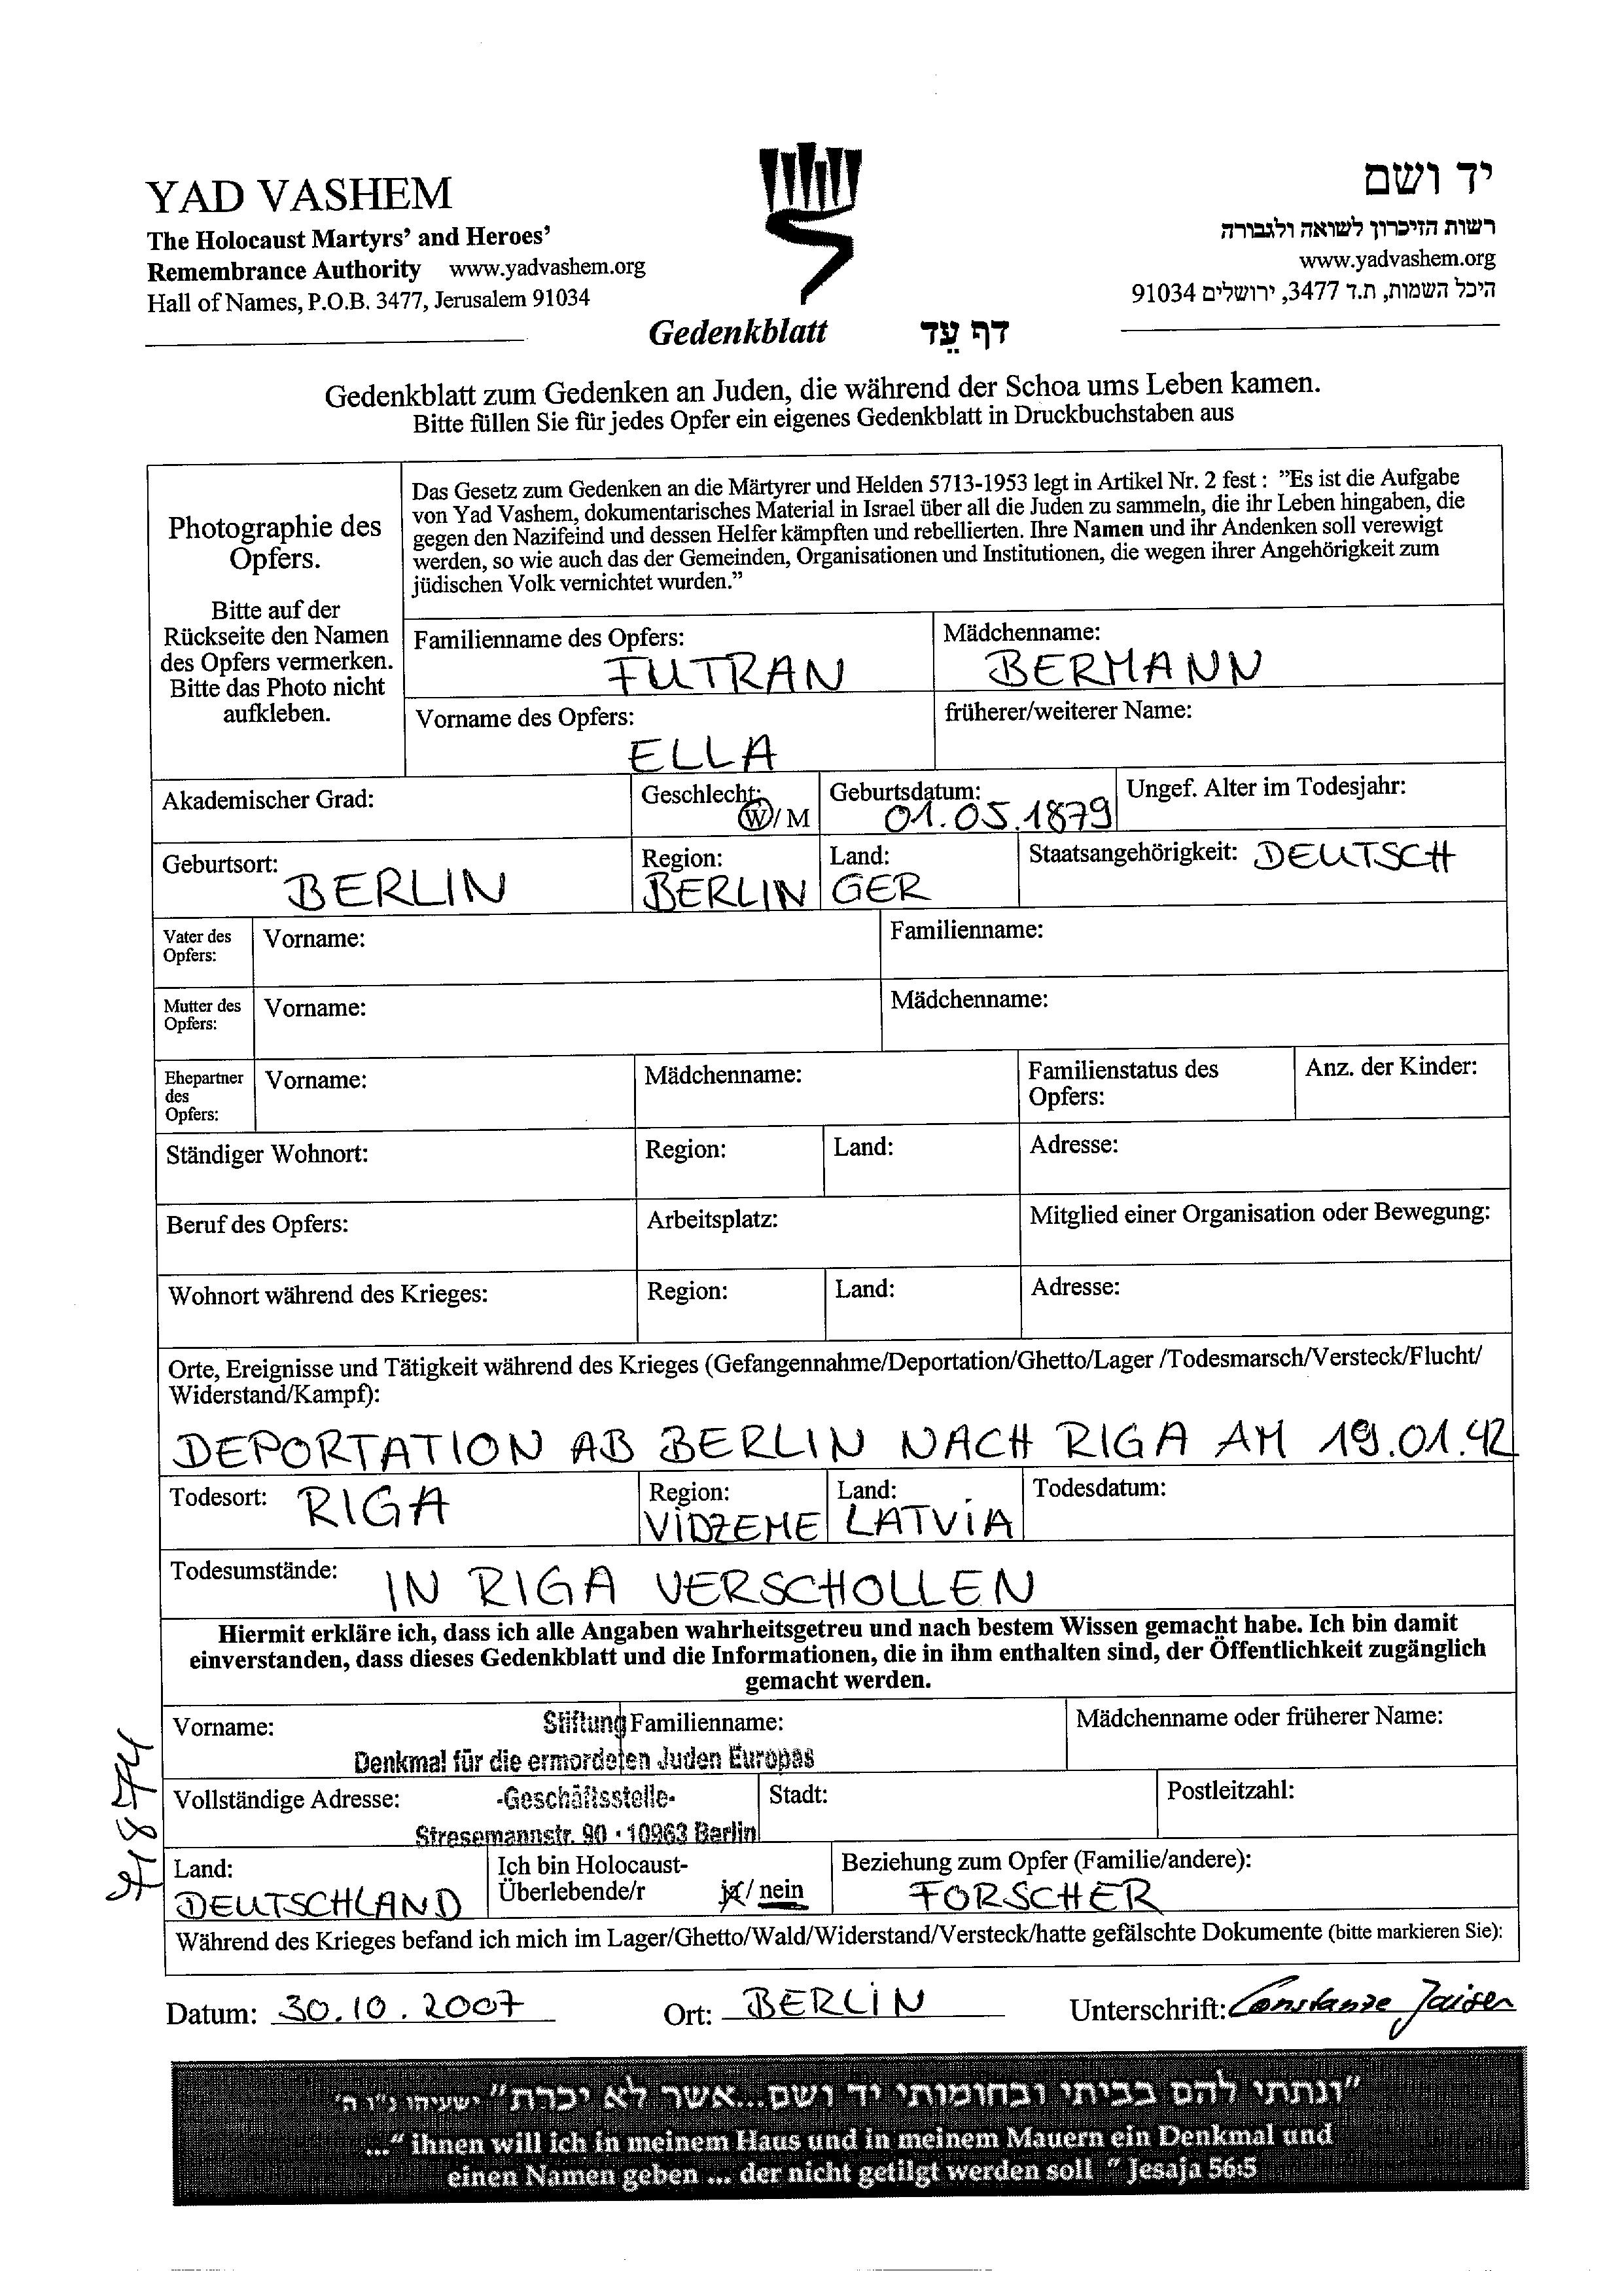 YAD VASHEM
The Holocaust Martyrs' and Heroes'
Remembrance Authority www.yadvashem.org
Hall of Names, P.O.B. 3477, Jerusalem 91034
יד ושם
רשות הזיכרון לשואה ולגבורה
www.yadvashem.org
היכל השמות, ת.ד 3477, ירושלים 91034
Gedenkblatt דף עֵד
Gedenkblatt zum Gedenken an Juden, die während der Schoa ums Leben kamen.
Bitte füllen Sie für jedes Opfer ein eigenes Gedenkblatt in Druckbuchstaben aus
Photographie des
Opfers.
Bitte auf der
Rückseite den Namen
des Opfers vermerken.
Bitte das Photo nicht
aufkleben.
Das Gesetz zum Gedenken an die Märtyrer und Helden 5713-1953 legt in Artikel Nr. 2 fest : "Es ist die Aufgabe
von Yad Vashem, dokumentarisches Material in Israel über all die Juden zu sammeln, die ihr Leben hingaben, die
gegen den Nazifeind und dessen Helfer kämpften und rebellierten. Ihre Namen und ihr Andenken soll verewigt
werden, so wie auch das der Gemeinden, Organisationen und Institutionen, die wegen ihrer Angehörigkeit zum
jüdischen Volk vernichtet wurden."
Familienname des Opfers: Mädchenname:
FUTRAN BERMANN
Vorname des Opfers: früherer/weiterer Name:
ELLA
Akademischer Grad: Geschlecht: W/M Geburtsdatum: 01.05.1879 Ungef. Alter im Todesjahr:
Geburtsort: BERLIN Region: BERLIN Land: GER Staatsangehörigkeit: DEUTSCH
Vater des Opfers: Vorname: Familienname:
Mutter des Opfers: Vorname: Mädchenname:
Ehepartner des Opfers: Vorname: Mädchenname: Familienstatus des Opfers: Anz. der Kinder:
Ständiger Wohnort: Region: Land: Adresse:
Beruf des Opfers: Arbeitsplatz: Mitglied einer Organisation oder Bewegung:
Wohnort während des Krieges: Region: Land: Adresse:
Orte, Ereignisse und Tätigkeit während des Krieges (Gefangennahme/Deportation/Ghetto/Lager /Todesmarsch/Versteck/Flucht/
Widerstand/Kampf):
DEPORTATION AB BERLIN NACH RIGA AM 19.01.42
Todesort: RIGA Region: VIDZEME Land: LATVIA Todesdatum:
Todesumstände: IN RIGA VERSCHOLLEN
Hiermit erkläre ich, dass ich alle Angaben wahrheitsgetreu und nach bestem Wissen gemacht habe. Ich bin damit
einverstanden, dass dieses Gedenkblatt und die Informationen, die in ihm enthalten sind, der Öffentlichkeit zugänglich
gemacht werden.
Vorname: Stiftung Familienname: Mädchenname oder früherer Name:
Denkmal für die ermordeten Juden Europas
Vollständige Adresse: -Geschäftsstelle- Stadt: Postleitzahl:
Stresemannstr. 90 · 10963 Berlin
Land: DEUTSCHLAND Ich bin Holocaust-Überlebende/r ja/ nein Beziehung zum Opfer (Familie/andere): FORSCHER
Während des Krieges befand ich mich im Lager/Ghetto/Wald/Widerstand/Versteck/hatte gefälschte Dokumente (bitte markieren Sie):
Datum: 30.10.2007 Ort: BERLIN Unterschrift: Constanze Jaiser
"ונתתי להם בביתי ובחומותי יד ושם...אשר לא יכרת" ישעיהו נ"ו ה'
..." ihnen will ich in meinem Haus und in meinem Mauern ein Denkmal und
einen Namen geben ... der nicht getilgt werden soll " Jesaja 56:5